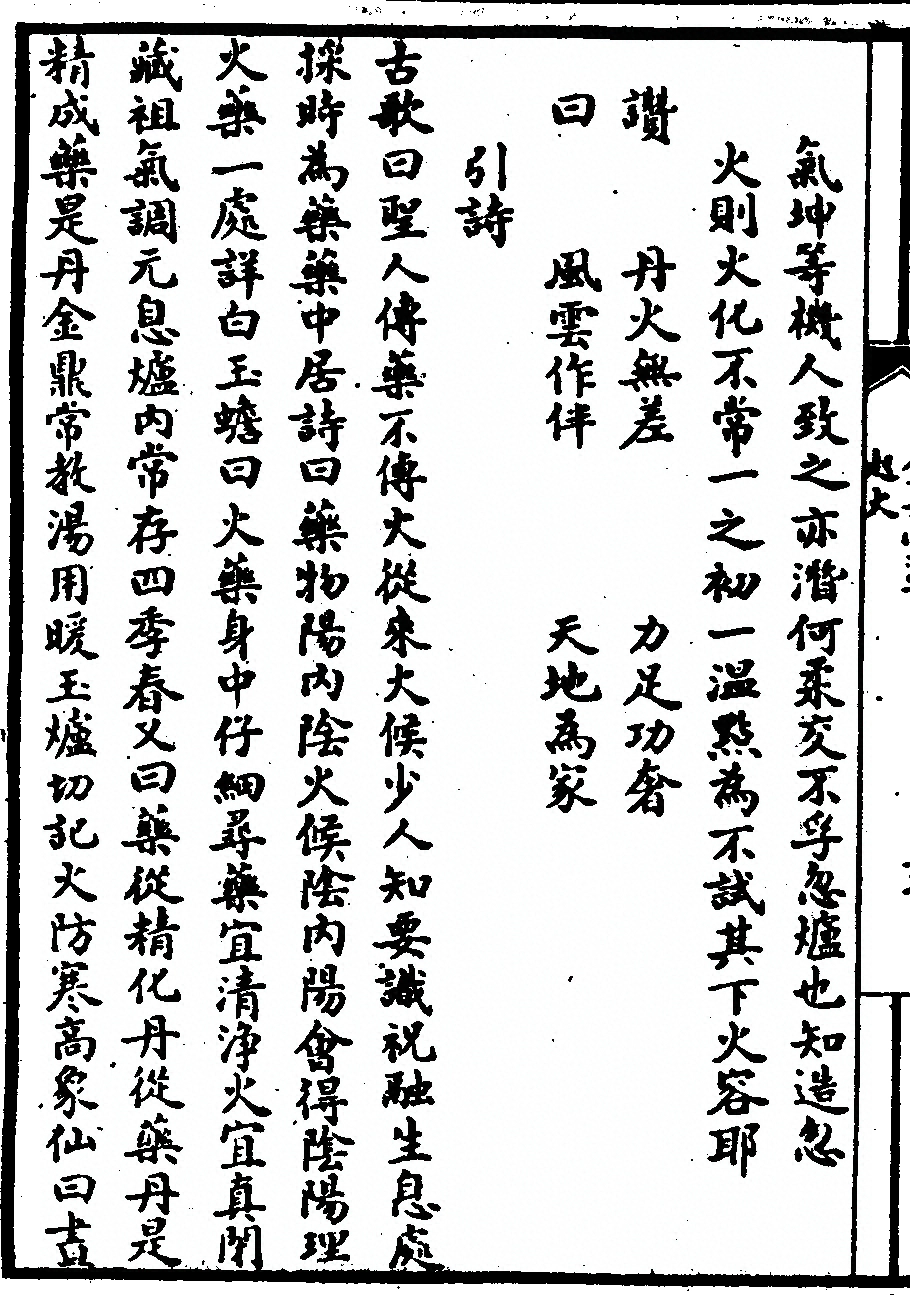 氣坤等機人致之亦潛何柔交不孚忽爐也知造忽
火則火化不常一之初一溫㸃為不試其下火容耶
讚　丹火無差　力足功奢
曰　風雲作伴　天地為家
引詩
古歌曰聖人傳藥不傳火從來火候少人知要識祝融生息處
採時為藥藥中居詩曰藥物陽內陰火候陰內陽會得陰陽理
火藥一處詳白玉蟾曰火藥身中仔細尋藥宜清淨火宜真閉
藏祖氣調元息爐內常存四季春又曰藥從精化丹從藥丹是
精成藥是丹金鼎常教湯用暖玉爐切記火防寒高象仙曰晝